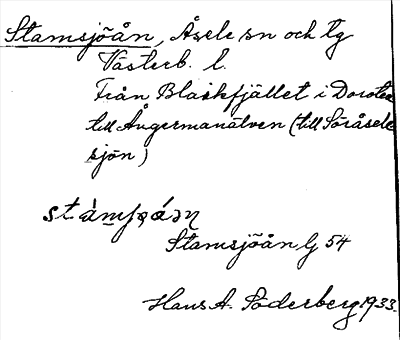 Stamsjöån, Åsele sn och tg
Västerb. l.
Från Blaikfjället i Dorotea
till Ångermanälven (till Söråsele
sjön)
Stamsjöån G 54
Hans A. Söderberg 1933.